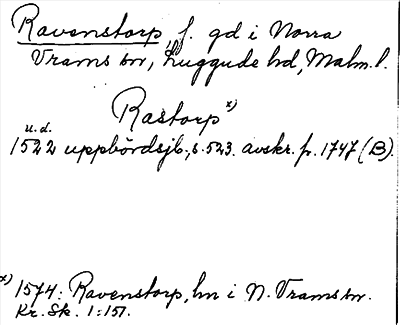 Ravenstorp, f. gd i Norra
Vrams sn, Luggude hd, Malm. l.
Rastorp x)
u.d.
1522 uppbördsjb., s. 523. avskr. fr. 1747 (B).
x) 1574: Ravenstorp, hn i N. Vrams sn.
Kr. Sk. 1:151.